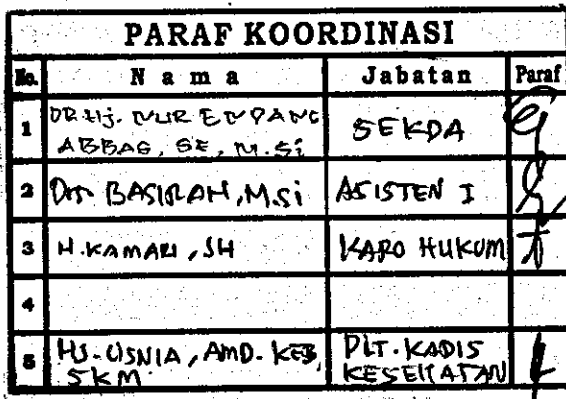 PARAF KOORDINASI
No. Nama Jabatan Paraf
1 DR. Hj. NUR ENDANG
ABBAS, SE, M.Si SEKDA
2 Drs. BASIRAN, M.Si ASISTEN I
3 H. KAMARI, SH KARO HUKUM
4
5 HJ. USNIA, AMD. KEB,
SKM. PLT. KADIS
KESEHATAN